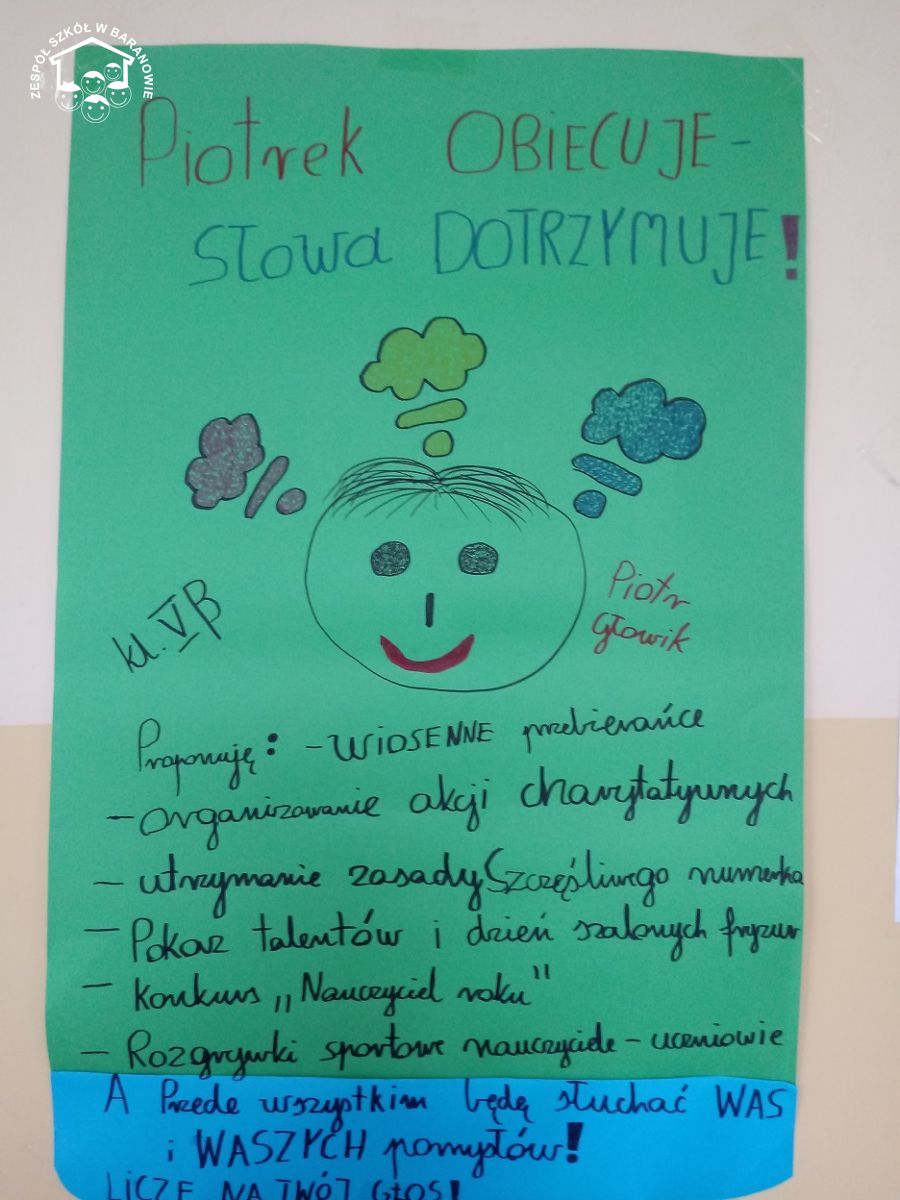 ZESPÓŁ SZKÓŁ W BARANOWIE
Piotrek OBIECUJE -
Słowa DOTRZYMUJE!
kl. VB
Piotr
Głowik
Proponuję: - WIOSENNE przebierańce
- organizowanie akcji charytatywnych
- utrzymanie zasady Szczęśliwego numerka
- Pokaz talentów i dzień szalonych fryzur
- konkurs „Nauczyciel roku"
- Rozgrywki sportowe nauczyciele - uczniowie
A Przede wszystkim będę słuchać WAS
i WASZYCH pomysłów!
LICZĘ NA TWÓJ GŁOS!